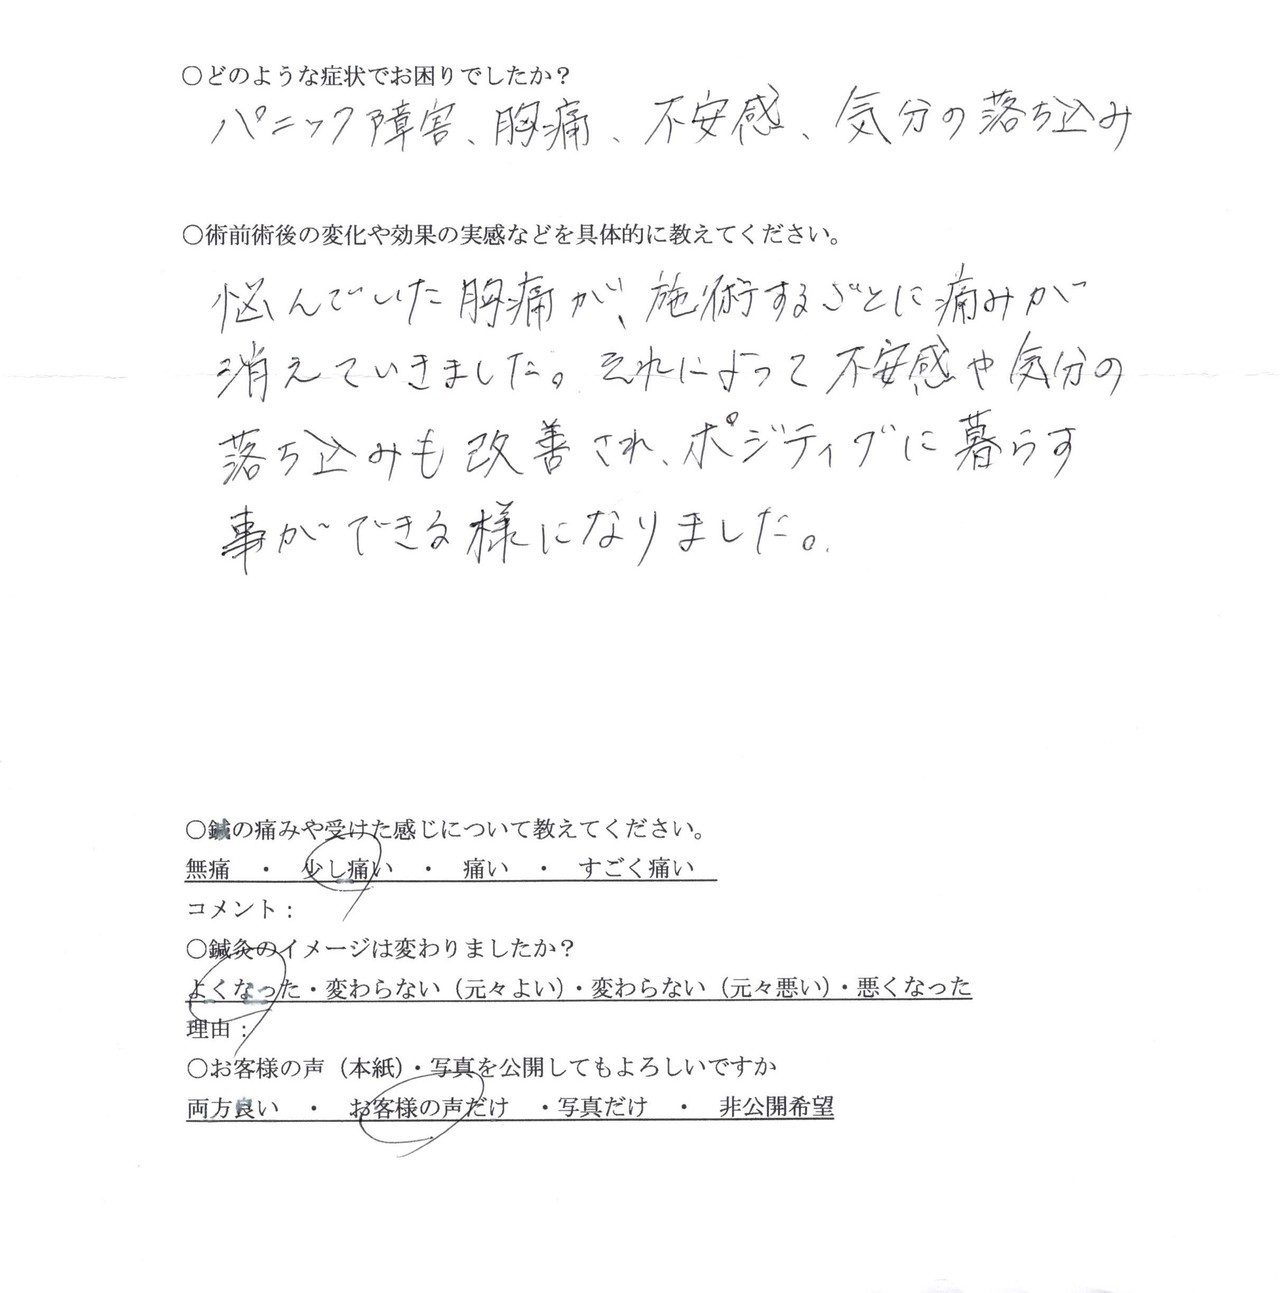 ○どのような症状でお困りでしたか？
パニック障害、胸痛、不安感、気分の落ち込み
○術前術後の変化や効果の実感などを具体的に教えてください。
悩んでいた胸痛が、施術するごとに痛みが
消えていきました。それによって不安感や気分の
落ち込みも改善され、ポジティブに暮らす
事ができる様になりました。
○鍼の痛みや受けた感じについて教えてください。
無痛　・　少し痛い　・　痛い　・　すごく痛い
コメント：
○鍼灸のイメージは変わりましたか？
よくなった・変わらない（元々よい）・変わらない（元々悪い）・悪くなった
理由：
○お客様の声（本紙）・写真を公開してもよろしいですか
両方良い　・　お客様の声だけ　・写真だけ　・　非公開希望